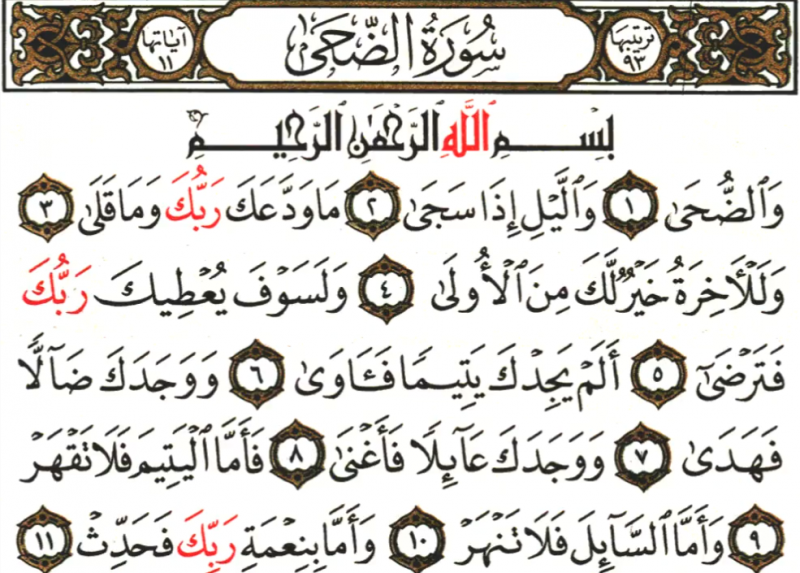 آياتها ١١ سُورَةُ الضُّحَىٰ ترتيبها ٩٣
بِسْمِ ٱللَّهِ ٱلرَّحْمَٰنِ ٱلرَّحِيمِ
وَٱلضُّحَىٰ ١ وَٱلَّيْلِ إِذَا سَجَىٰ ٢ مَا وَدَّعَكَ رَبُّكَ وَمَا قَلَىٰ ٣
وَلَلْأَخِرَةُ خَيْرٌ لَّكَ مِنَ ٱلْأُولَىٰ ٤ وَلَسَوْفَ يُعْطِيكَ رَبُّكَ
فَتَرْضَىٰٓ ٥ أَلَمْ يَجِدْكَ يَتِيمًا فَـَٔاوَىٰ ٦ وَوَجَدَكَ ضَآلًّا
فَهَدَىٰ ٧ وَوَجَدَكَ عَآئِلًا فَأَغْنَىٰ ٨ فَأَمَّا ٱلْيَتِيمَ فَلَا تَقْهَرْ
٩ وَأَمَّا ٱلسَّآئِلَ فَلَا تَنْهَرْ ١٠ وَأَمَّا بِنِعْمَةِ رَبِّكَ فَحَدِّثْ ١١